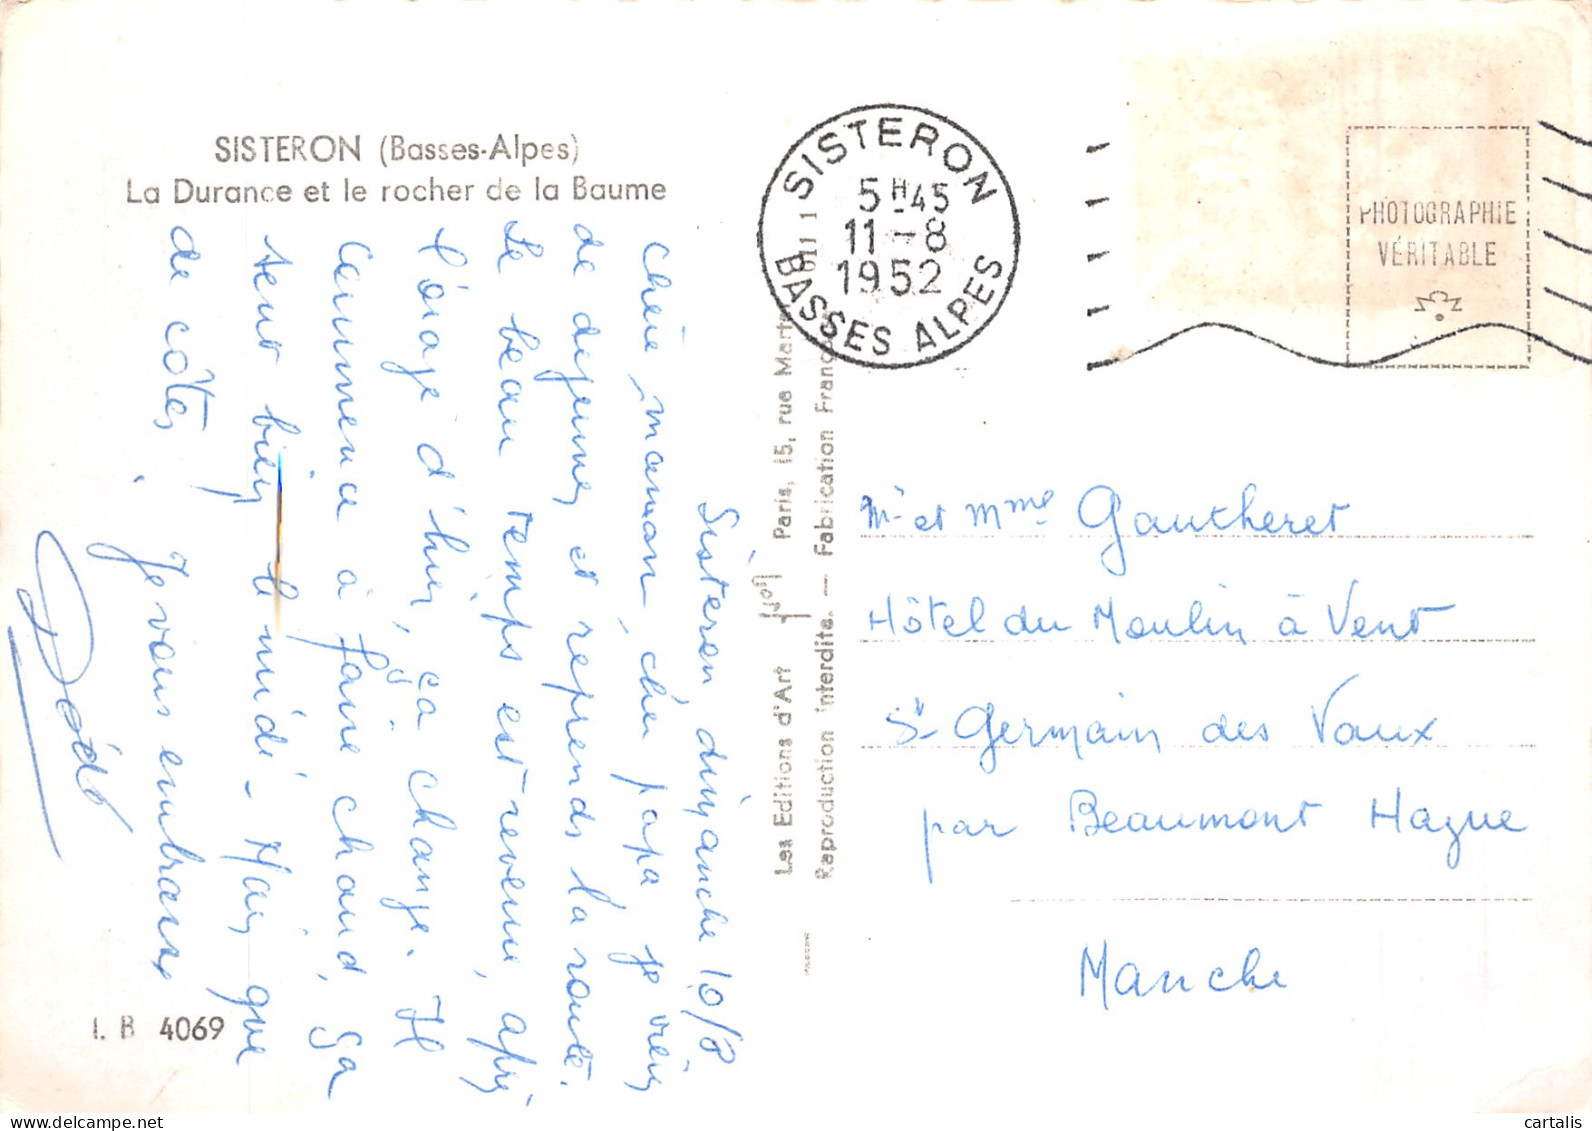 SISTERON (Basses-Alpes)
La Durance et le rocher de la Baume
Sisteron, dimanche 10/8
Chère maman, cher papa je viens
de dejeuner et reprends la route.
Le beau temps est revenu, après
l'orage d'hier, ça change. Il
commence à faire chaud, ça
sent bien le midi - Mais que
de côtes.
Je vous embrasse
I. B 4069
Les Editions d'Art
Paris, 15, rue
Reproduction interdite. — Fabrication
SISTERON
5H45
11-8
1952
BASSES ALPES
PHOTOGRAPHIE
VÉRITABLE
Mr et Mme Gautheret
Hôtel du Moulin à Vent
St Germain des Vaux
par Beaumont Hague
Manche
cartalis